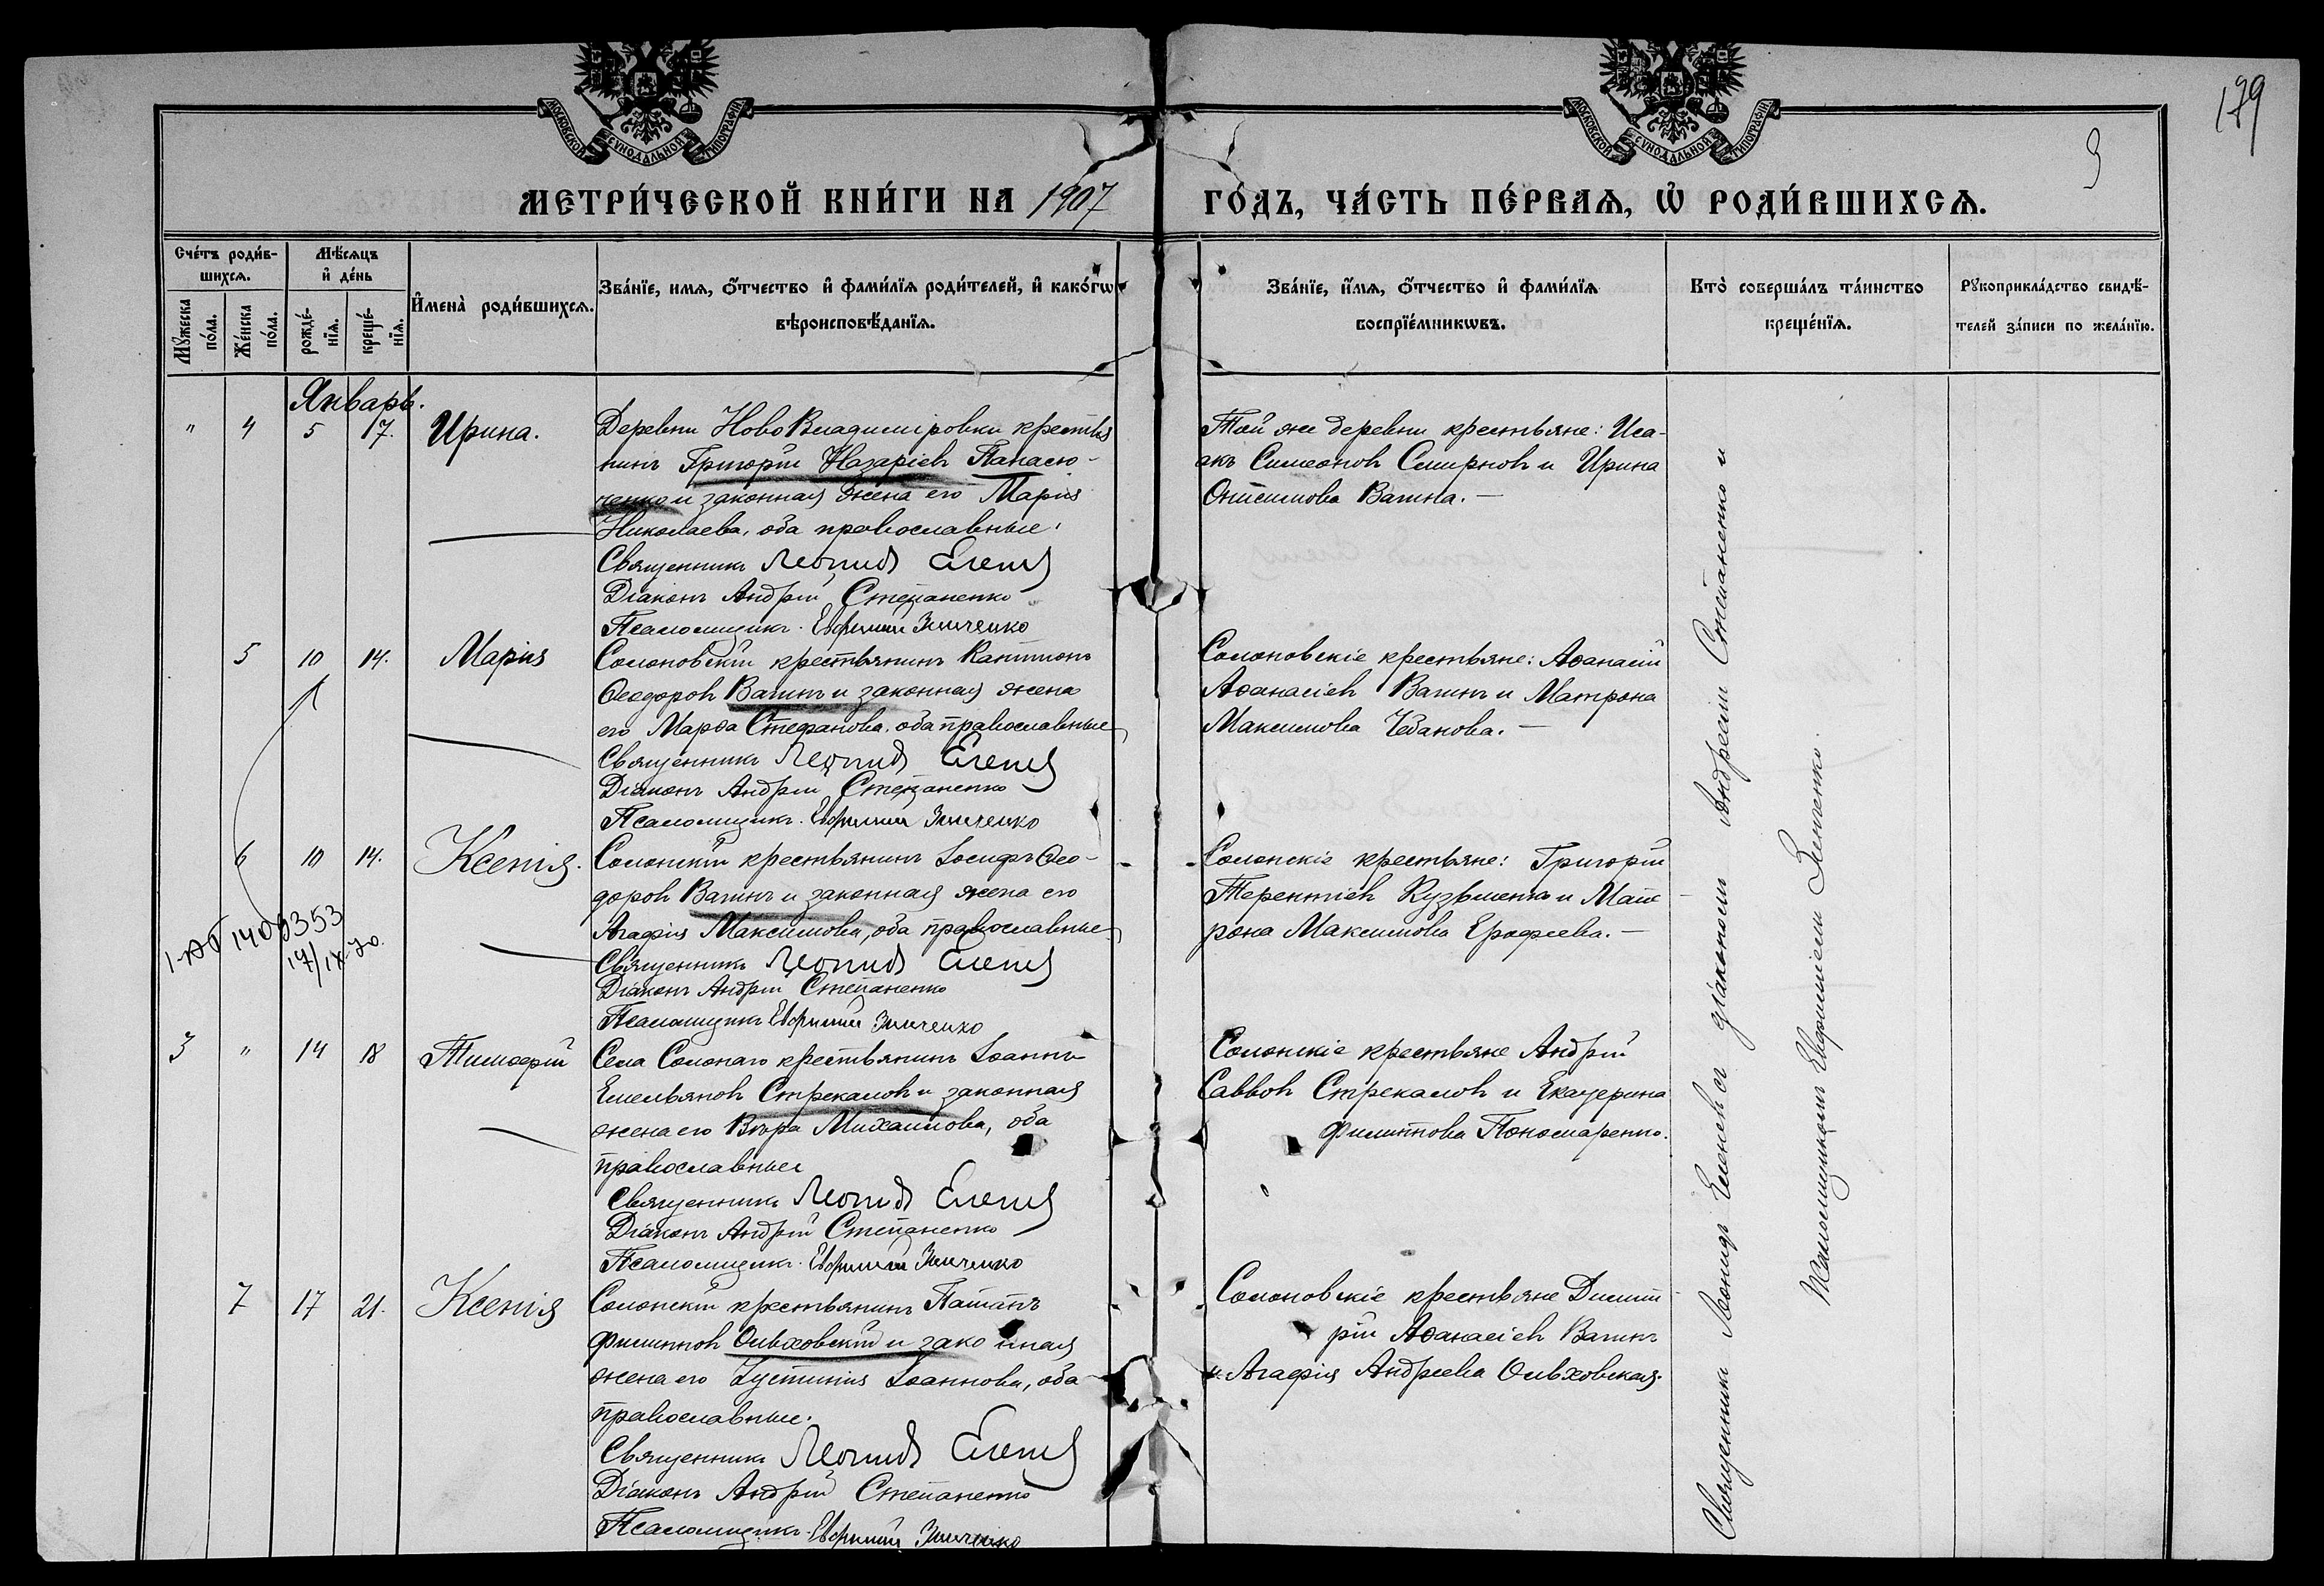 МОСКОВСКОЙ СѴНОДАЛЬНОЙ ТИПОГРАФІИ
МОСКОВСКОЙ СѴНОДАЛЬНОЙ ТИПОГРАФІИ
179
9
МЕТРИ́ЧЕСКОЙ КНИ́ГИ НА 1907 ГО́ДЪ, ЧА́СТЬ ПЕ́РВАѦ, Ѡ҆ РОДИ́ВШИХСѦ.
Сче́тъ роди́в-
шихсѧ.
Мꙋ́жеска по́ла.
Же́нска по́ла.
Мѣ́сѧцъ
и҆ де́нь
рожде́-
нїѧ.
креще́-
нїѧ.
И҆мена̀ роди́вшихсѧ.
Зва́нїе, имѧ, ѻ҆́тчество и҆ фами́лїѧ роди́телей, и҆ како́гѡ
вѣроисповѣ́данїѧ.
Зва́нїе, и҆́мѧ, ѻ҆́тчество и҆ фами́лїѧ
воспрїе́мникѡвъ.
Кто̀ соверша́лъ та́инство
креще́нїѧ.
Рꙋкоприкла́дство свидѣ́-
телей за́писи по жела́нїю.
Январь.
" 4 5 17. Ирина.
Деревни НовоВладиміровки крестья
нинъ Григорій Назаріевъ Панасю-
ченко и законная жена его Марія
Николаева, оба православные.
Священникъ Леонидъ Еленевъ
Діаконъ Андрей Степаненко
Псаломщикъ Евфимій Зинченко
Той же деревни крестьяне: Иса-
акъ Симеоновъ Смирновъ и Ирина
Онисимова Вагина.
5 10 14. Марія
Солоновскій крестьянинъ Капитонъ
Ѳеодоровъ Вагинъ и законная жена
его Марѳа Стефанова, оба православные
Священникъ Леонидъ Еленевъ
Діаконъ Андрей Степаненко
Псаломщикъ Евфимій Зинченко
Солоновскіе крестьяне: Аѳанасій
Аѳанасіевъ Вагинъ и Матрона
Максимова Чебанова.
6 10 14. Ксенія.
Солонскій крестьянинъ Іосифъ Ѳео-
доровъ Вагинъ и законная жена его
Агафія Максимова, оба православные
Священникъ Леонидъ Еленевъ
Діаконъ Андрей Степаненко
Псаломщикъ Евфимій Зинченко
Солонскіе крестьяне: Григорій
Терентіевъ Кузьменко и Мат
рона Максимова Ерофеева.
1400353
17/IX-70.
3 " 14 18 Тимоѳей
Села Солонаго крестьянинъ Іоаннъ
Емельяновъ Стрекаловъ и законная
жена его Вѣра Михаилова, оба
православные
Священникъ Леонидъ Еленевъ
Діаконъ Андрей Степаненко
Псаломщикъ Евфимій Зинченко
Солонскіе крестьяне Андрей
Саввовъ Стрекаловъ и Екатерина
Филиппова Пономаренко.
7 17 21. Ксенія
Солонскій крестьянинъ Потапъ
Филипповъ Ольховскій и законная
жена его Іустинія Іоаннова, оба
православные.
Священникъ Леонидъ Еленевъ
Діаконъ Андрей Степаненко
Псаломщикъ Евфимій Зинченко
Солоновскіе крестьяне Димит
рій Аѳанасіевъ Вагинъ
и Агафія Андреева Ольховская.
Священникъ Леонидъ Еленевъ съ діакономъ Андреемъ Степаненко и
псаломщикомъ Евфиміемъ Зинченко.